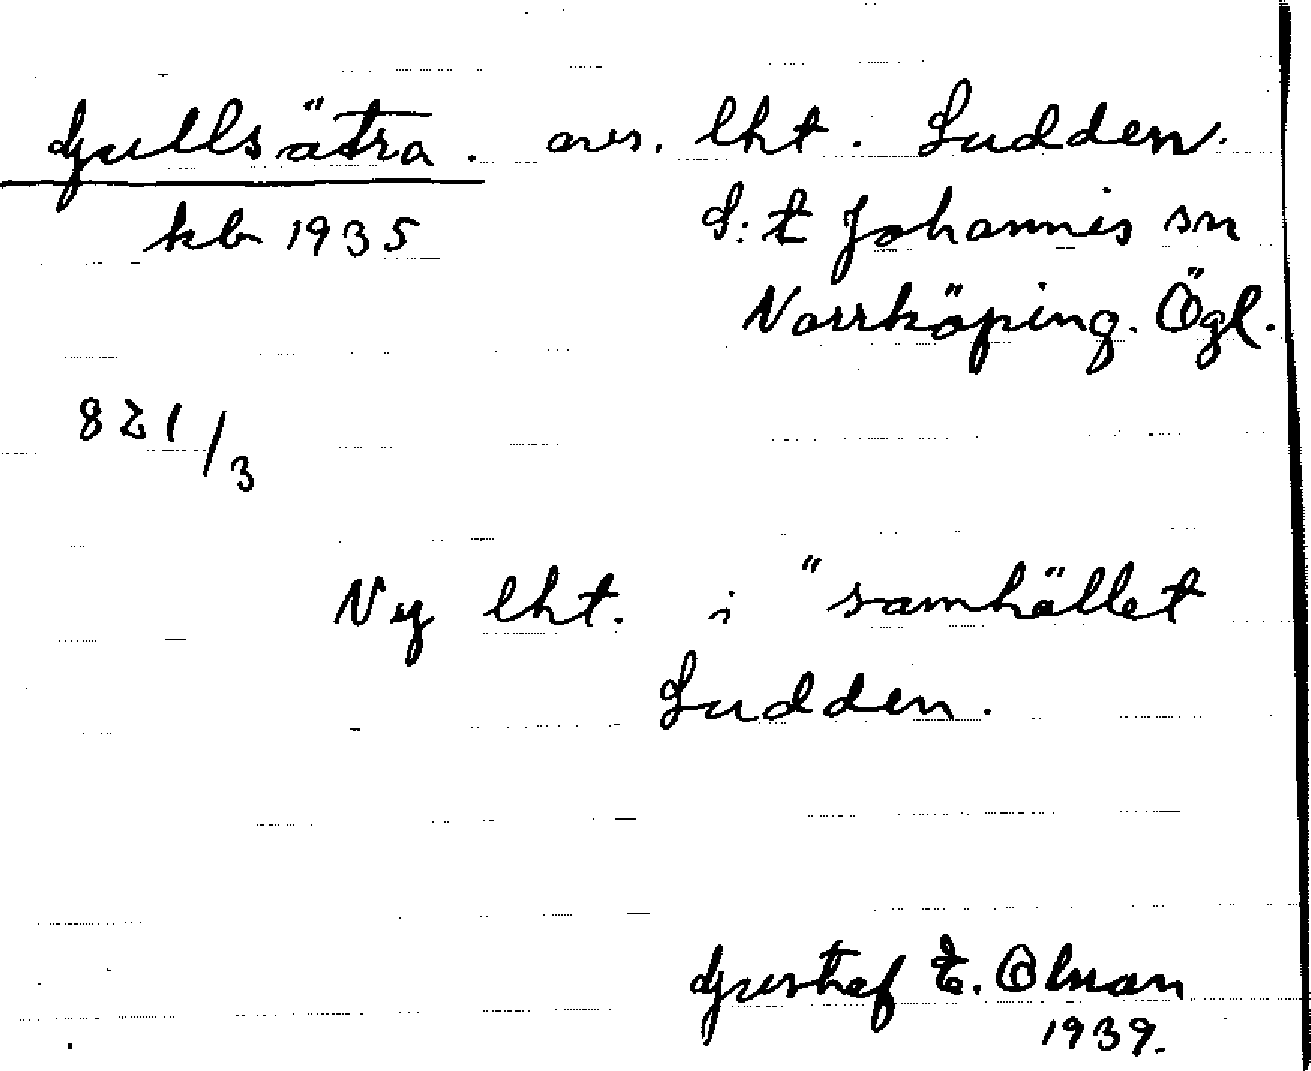 Gullsätra. avs. lht. Sudden.
kb 1935 S:t Johannis sn
Norrköping. Ögl.
821/3
Ny lht. i "samhället
Sudden.
Gustaf E. Olson
1939.